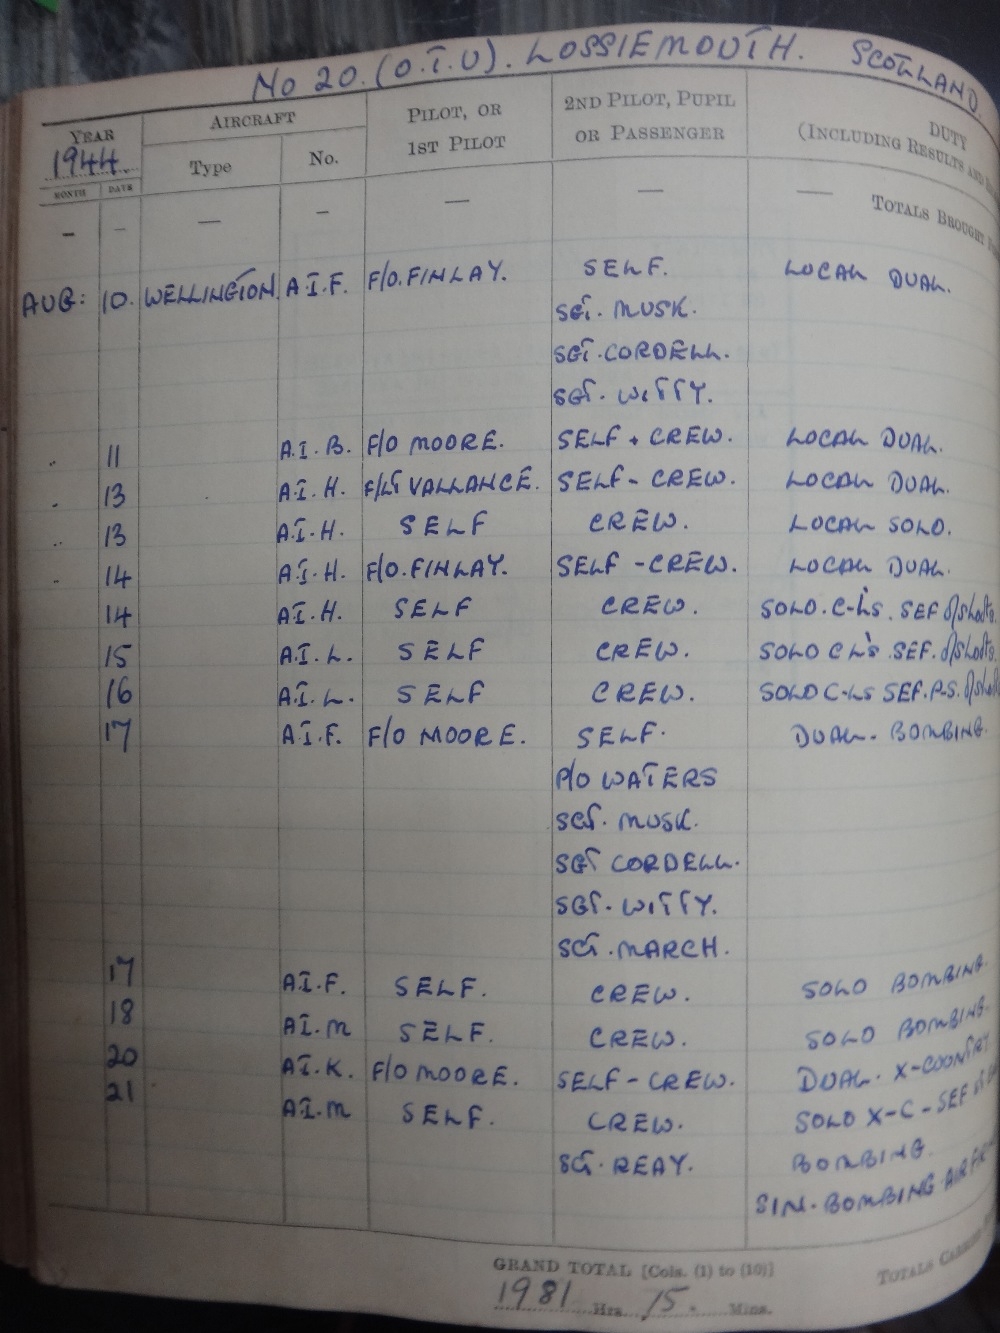 No 20. (O.T.U). LOSSIEMOUTH. SCOTLAND.
YEAR AIRCRAFT PILOT, OR 2ND PILOT, PUPIL DUTY
1944. Type No. 1ST PILOT OR PASSENGER (INCLUDING RESULTS AND
MONTH DAYS
— — — — — — — TOTALS BROUGHT
AUG: 10. WELLINGTON. A.I.F. F/O. FINLAY. SELF. LOCAL DUAL.
SGT. MUSK.
SGT. CORDELL.
SGT. WITTY.
11 A.I.B. F/O MOORE. SELF + CREW. LOCAL DUAL.
13 A.I.H. F/LT VALLANCE. SELF - CREW. LOCAL DUAL.
13 A.I.H. SELF CREW. LOCAL SOLO.
14 A.I.H. F/O. FINLAY. SELF - CREW. LOCAL DUAL.
14 A.I.H. SELF CREW. SOLO. C-L'S. SEF
15 A.I.L. SELF CREW. SOLO C L'S. SEF.
16 A.I.L. SELF CREW. SOLO C-LS SEF. P.S.
17 A.I.F. F/O MOORE. SELF. DUAL. BOMBING.
P/O WATERS
SGT. MUSK.
SGT CORDELL.
SGT. WITTY.
SGT. MARCH.
17 A.I.F. SELF. CREW. SOLO BOMBING.
18 A.I.M SELF. CREW. SOLO BOMBING.
20 A.I.K. F/O MOORE. SELF - CREW. DUAL. X-COUNTRY
21 A.I.M SELF. CREW. SOLO X-C - SEF
SGT. REAY. BOMBING.
SIM. BOMBING
GRAND TOTAL [Cols. (1) to (10)]
1981 Hrs. 15. Mins.
TOTALS